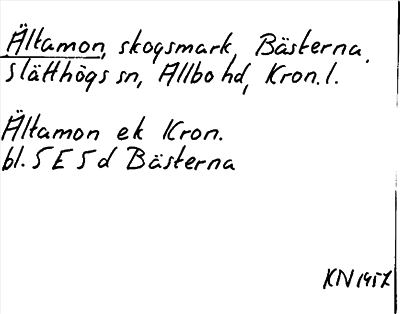 Ältamon, skogsmark, Bästerna.
Slätthögs sn, Allbo hd, Kron. l.
Ältamon ek Kron.
bl. 5 E 5 d Bästerna
KN 1957